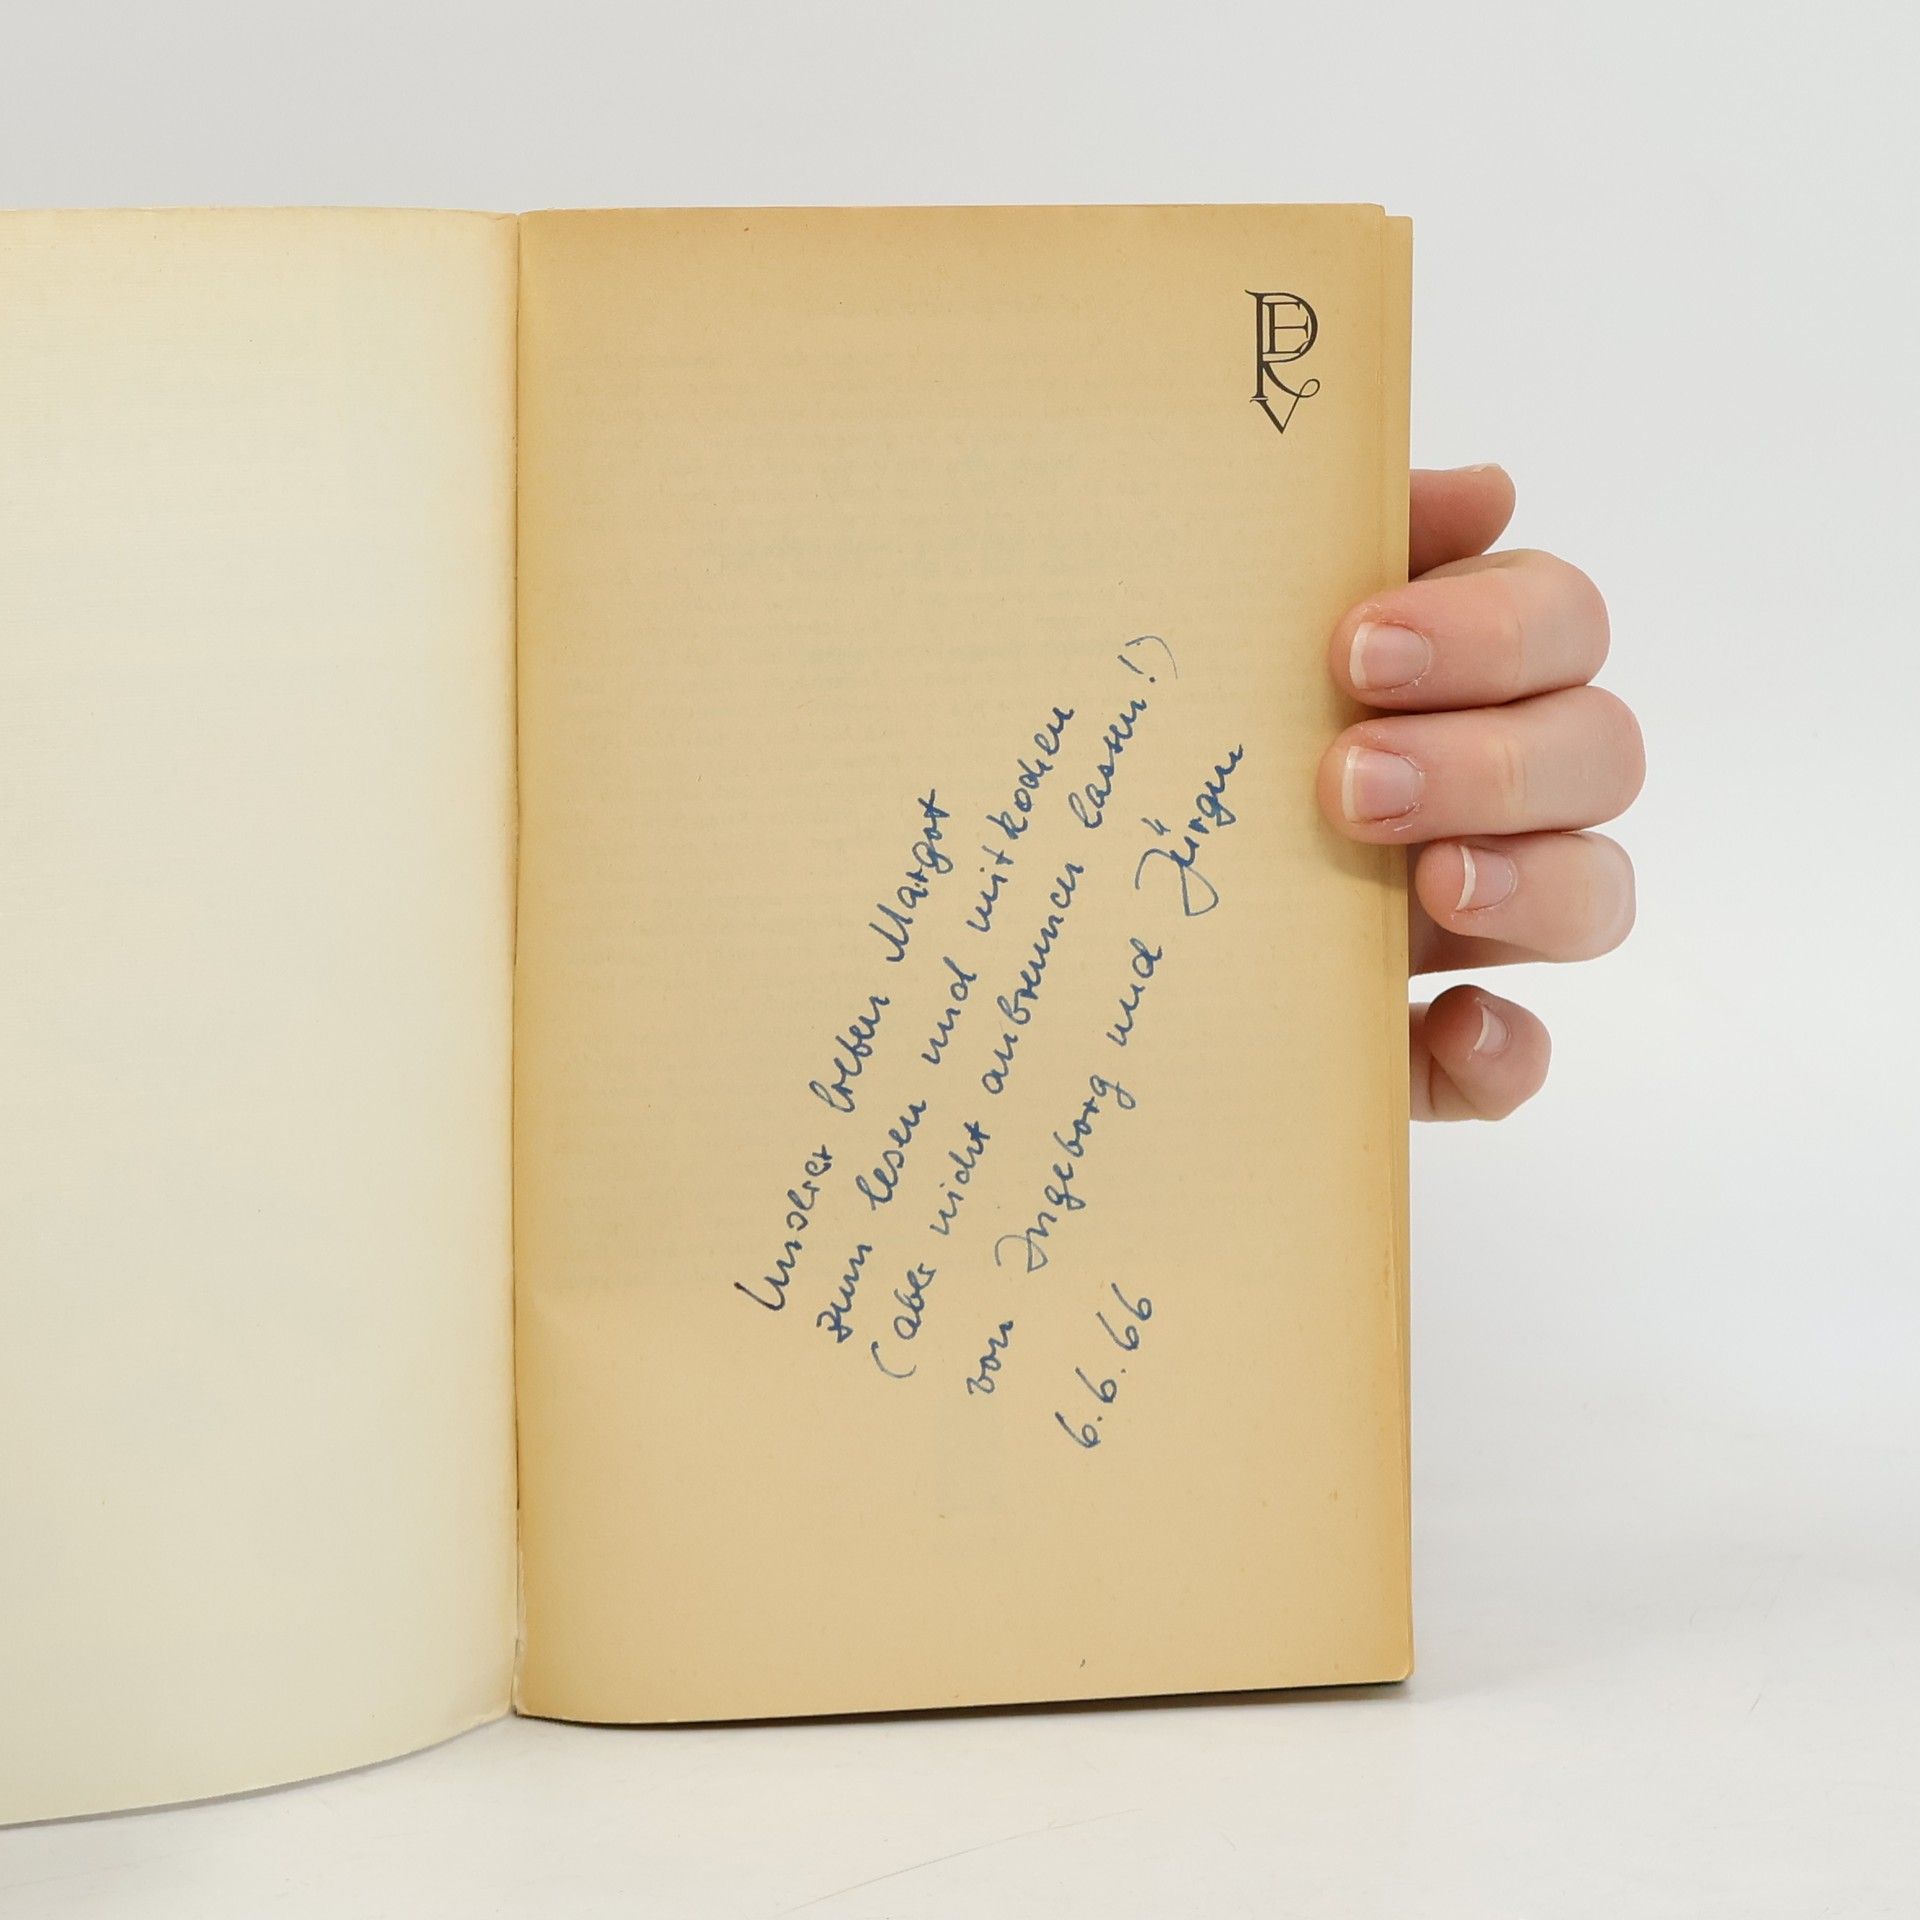 PEV
Unserer lieben Margot
zum lesen und mitkochen
(aber nicht anbrennen lassen!)
von Ingeborg und Jürgen
6.6.66